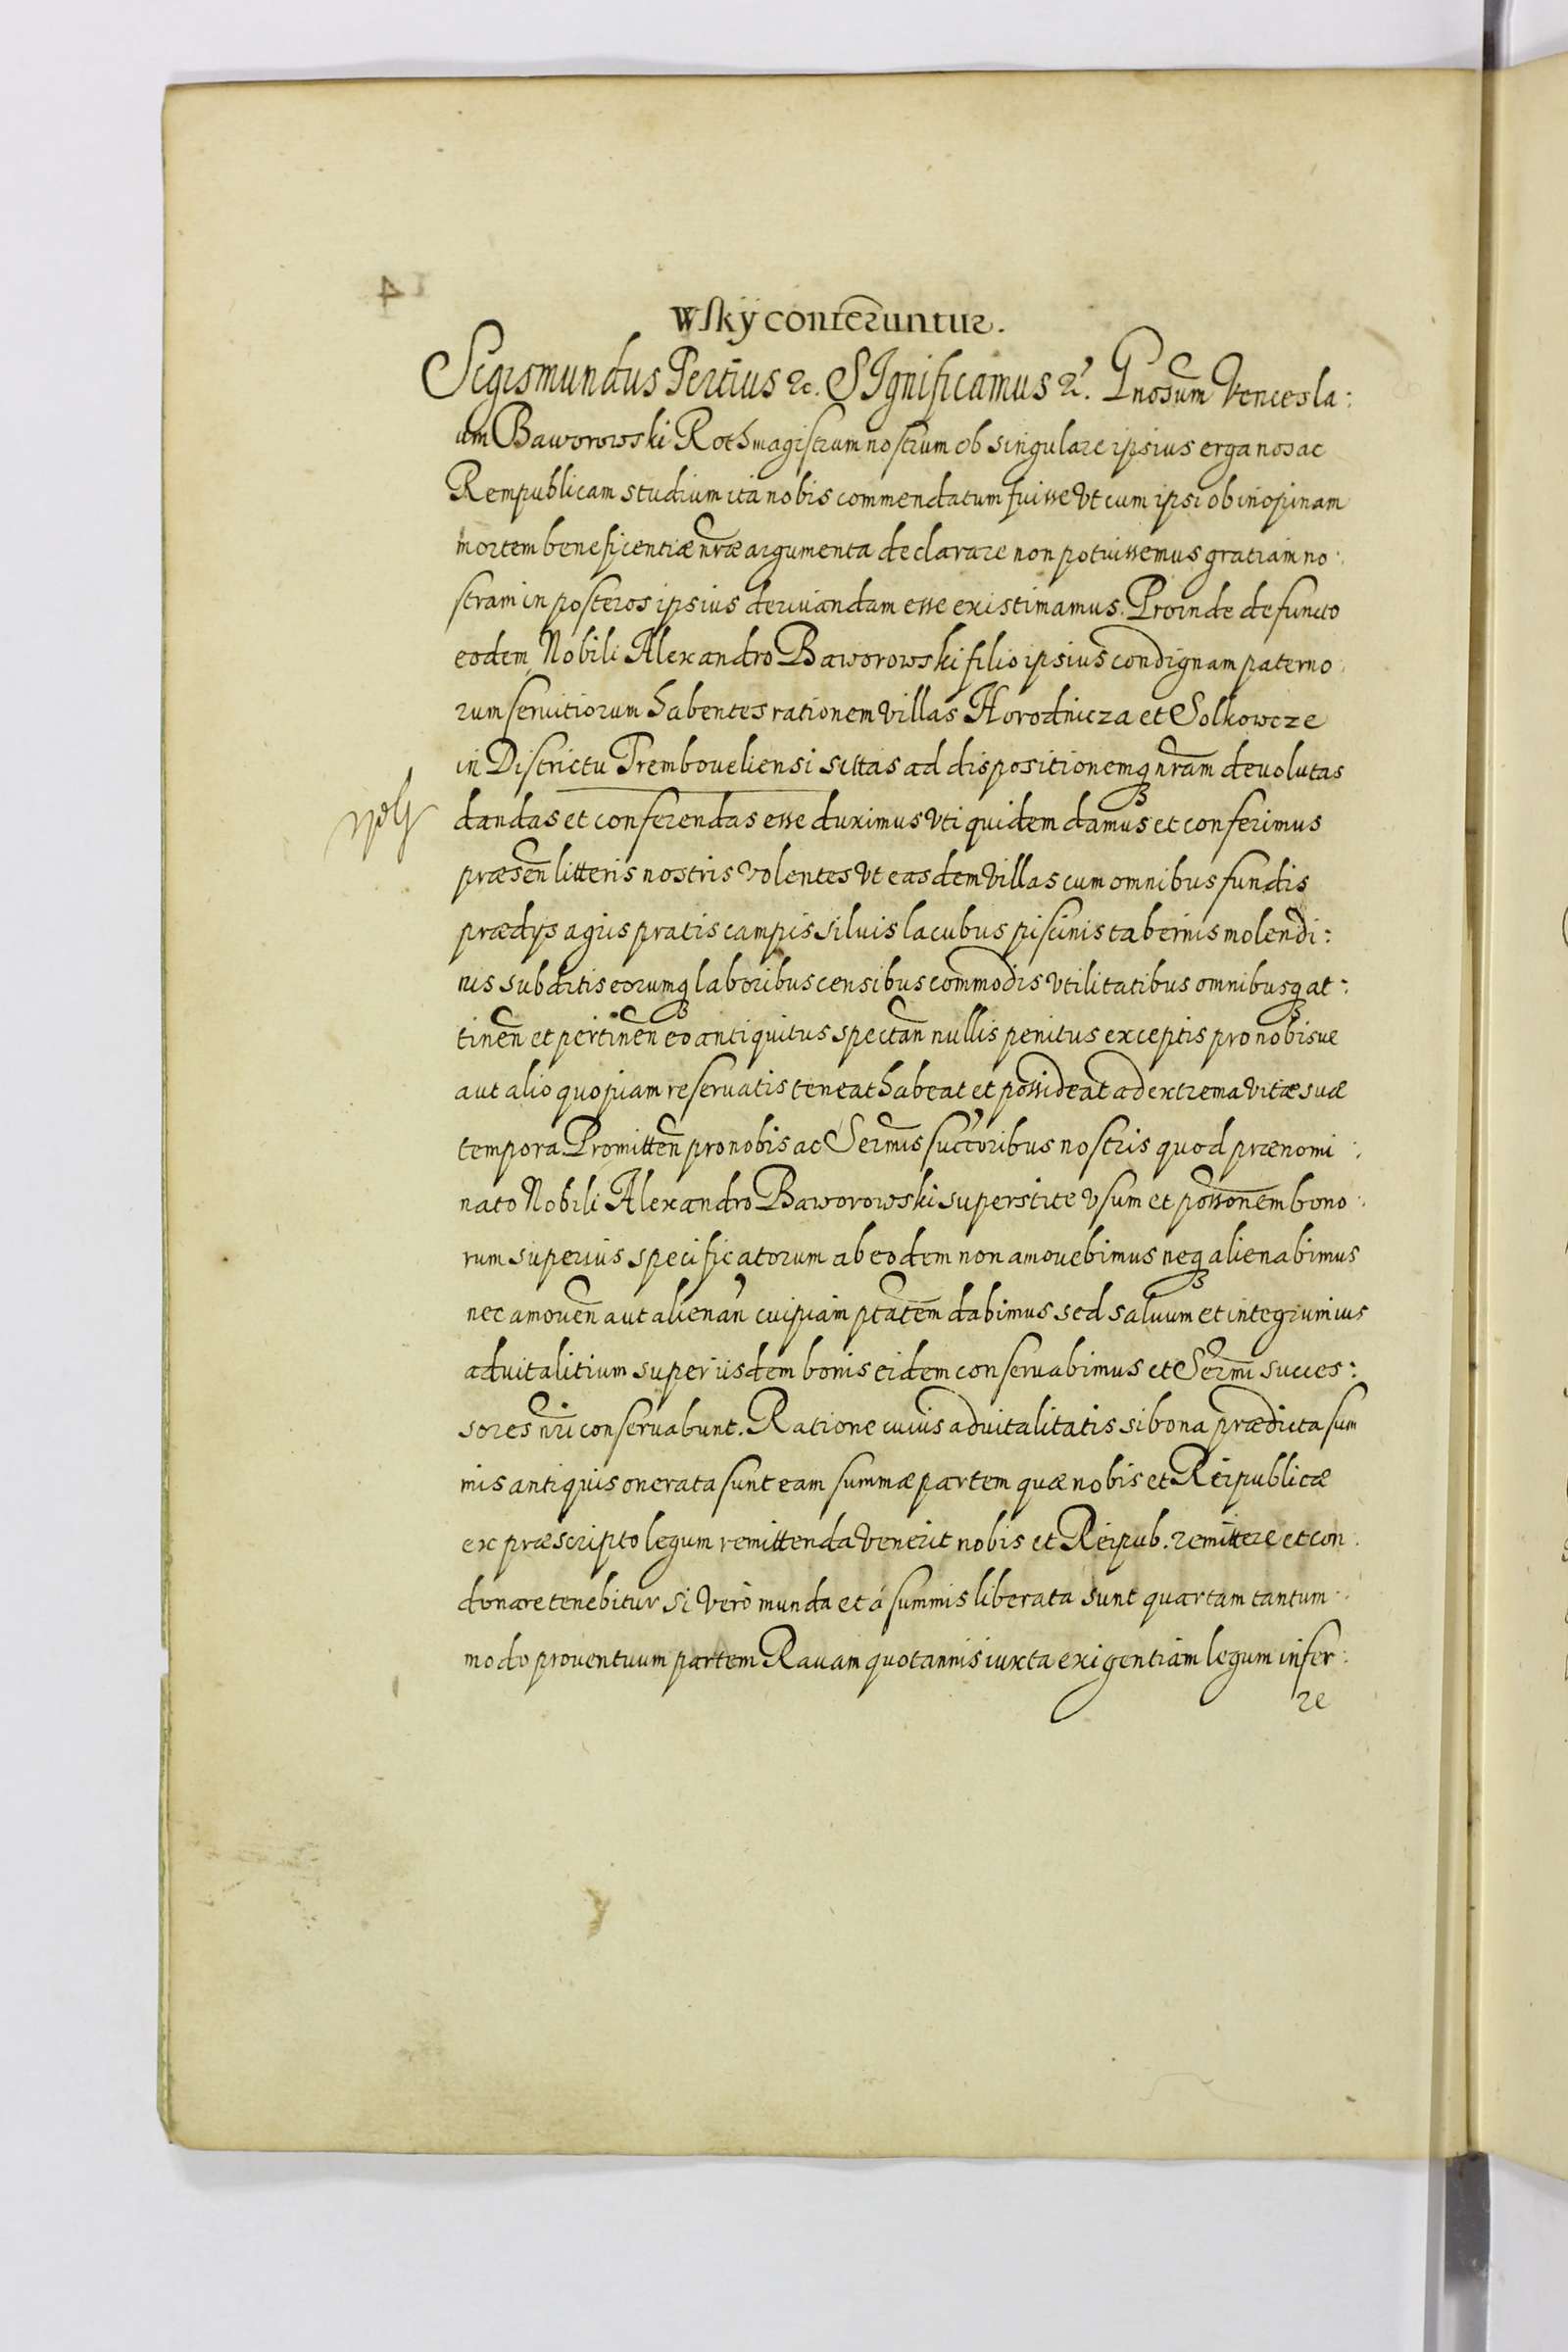 wsky conferuntur.
Sigismundus Tertius &c. SIgnificamus &. Gnosum Vencesla:
um Baworowski Rothmagistrum nostrum ob singulare ipsius erga nos ac
Rempublicam studium ita nobis commendatum fuisse Vt cum ipsi ob inopinam
mortem beneficentiæ nræ argumenta declarare non potuissemus gratiam no:
stram in posteros ipsius deriuandam esse existimamus. Proinde defuncto
eodem Nobili Alexandro Baworowski filio ipsius condignam paterno:
rum seruitiorum habentes rationem villas Horodnicza et Solkowcze
in Districtu Tremboueliensi sittas ad dispositionemq nram deuolutas
dandas et conferendas esse duximus vti quidem damus et conferimus
præsen litteris nostris volentes Vt easdem Villas cum omnibus fundis
prædijs agris pratis campis siluis lacubus piscinis tabernis molendi:
nis subditis eorumq laboribus censibus commodis vtilitatibus omnibusq at:
tinen et pertinen eo antiquitus spectan nullis penitus exceptis pro nobisue
aut alio quopiam reseruatis teneat habeat et possideat ad extrema vitæ suæ
tempora Promitten pro nobis ac Sermis succoribus nostris quod prænomi:
nato Nobili Alexandro Baworowski superstite vsum et possonem bono:
rum superius specificatorum ab eodem non amouebimus neq alienabimus
nec amouen aut alienan cuipiam ptatem dabimus sed saluum et integrum ius
aduitalitium super iisdem bonis eidem conseruabimus et Sermi succes:
sores nri conseruabunt. Ratione cuius aduitalitatis si bona prædicta sum
mis antiquis onerata sunt eam summæ partem quæ nobis et Reipublicæ
ex præscripto legum remittenda Venerit nobis et Reipub. remittere et con:
donare tenebitur si Vero munda et á summis liberata sunt quartam tantum:
modo prouentuum partem Rauam quotannis iuxta exigentiam legum infer:
re